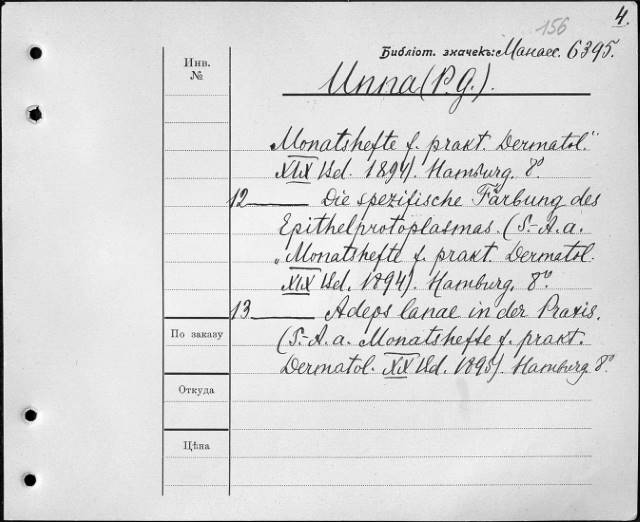 4.
156
Библіот. значекъ: Манасс. 6395.
Инв.
№
Unna (P. G.).
Monatshefte f. prakt. Dermatol."
XIX Bd. 1894). Hamburg. 8º
12 — Die spezifische Färbung des
Epithelprotoplasmas. (S.-A. a.
„Monatshefte f. prakt. Dermatol.
XIX Bd. 1894). Hamburg. 8º.
13 — Adeps lanae in der Praxis.
(S.-A. a. Monatshefte f. prakt.
Dermatol. XX Bd. 1895). Hamburg 8º.
По заказу
Откуда
Цѣна